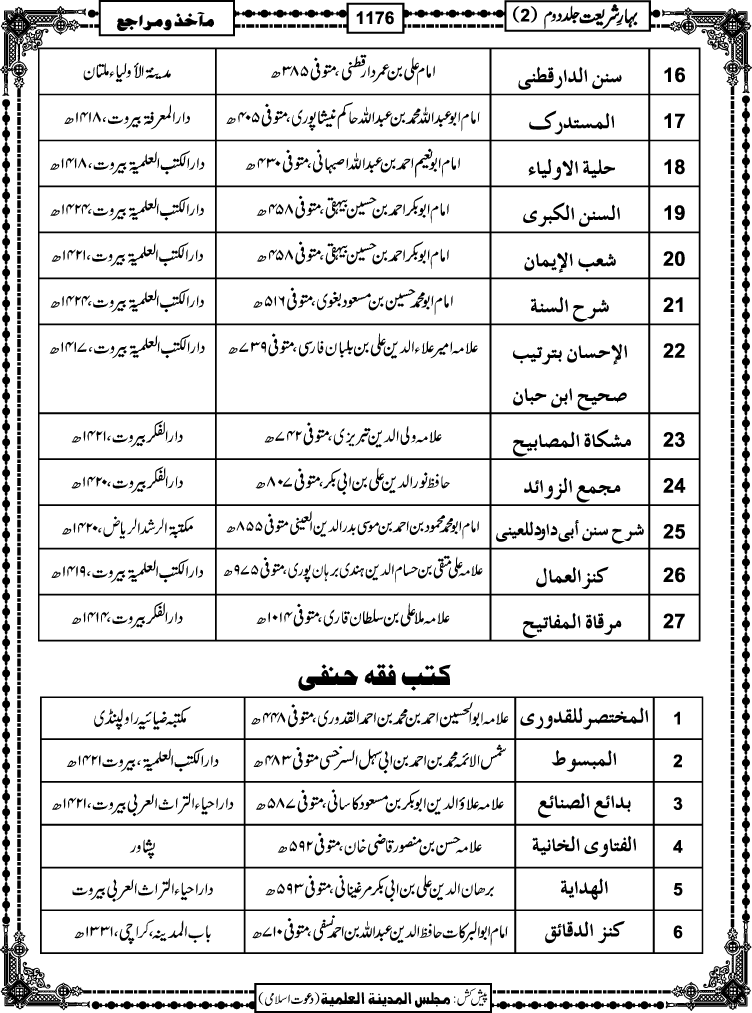 بہارِ شریعت جلد دوم (2) 1176 مآخذ و مراجع
16 سنن الدارقطنی امام علی بن عمر دارقطنی، متوفی ۳۸۵ھ مدینۃ الأولیاء ملتان
17 المستدرک امام ابو عبداللہ محمد بن عبداللہ حاکم نیشاپوری، متوفی ۴۰۵ھ دارالمعرفۃ بیروت، ۱۴۱۸ھ
18 حلیۃ الاولیاء امام ابو نعیم احمد بن عبداللہ اصبہانی، متوفی ۴۳۰ھ دارالکتب العلمیۃ بیروت، ۱۴۱۸ھ
19 السنن الکبری امام ابوبکر احمد بن حسین بیہقی، متوفی ۴۵۸ھ دارالکتب العلمیۃ بیروت، ۱۴۲۴ھ
20 شعب الإیمان امام ابوبکر احمد بن حسین بیہقی، متوفی ۴۵۸ھ دارالکتب العلمیۃ بیروت، ۱۴۲۱ھ
21 شرح السنة امام ابو محمد حسین بن مسعود بغوی، متوفی ۵۱۶ھ دارالکتب العلمیۃ بیروت، ۱۴۲۴ھ
22 الإحسان بترتیب علامہ امیر علاء الدین علی بن بلبان فارسی، متوفی ۷۳۹ھ دارالکتب العلمیۃ بیروت، ۱۴۱۷ھ
صحیح ابن حبان
23 مشکاة المصابیح علامہ ولی الدین تبریزی، متوفی ۷۴۲ھ دارالفکر بیروت، ۱۴۲۱ھ
24 مجمع الزوائد حافظ نور الدین علی بن ابی بکر، متوفی ۸۰۷ھ دارالفکر بیروت، ۱۴۲۰ھ
25 شرح سنن أبی داود للعینی امام ابو محمد محمود بن احمد بن موسی بدر الدین العینی متوفی ۸۵۵ھ مکتبۃ الرشد الریاض، ۱۴۲۰ھ
26 کنز العمال علامہ علی متقی بن حسام الدین ہندی برہان پوری، متوفی ۹۷۵ھ دارالکتب العلمیۃ بیروت، ۱۴۱۹ھ
27 مرقاة المفاتیح علامہ ملا علی بن سلطان قاری، متوفی ۱۰۱۴ھ دارالفکر بیروت، ۱۴۱۴ھ
کتب فقہ حنفی
1 المختصر للقدوری علامہ ابوالحسین احمد بن محمد بن احمد القدوری، متوفی ۴۴۸ھ مکتبہ ضیائیہ راولپنڈی
2 المبسوط شمس الائمہ محمد بن احمد بن ابی سہل السرخسی متوفی ۴۸۳ھ دارالکتب العلمیۃ، بیروت ۱۴۲۱ھ
3 بدائع الصنائع علامہ علاؤ الدین ابوبکر بن مسعود کاسانی، متوفی ۵۸۷ھ داراحیاء التراث العربی بیروت، ۱۴۲۱ھ
4 الفتاوی الخانیة علامہ حسن بن منصور قاضی خان، متوفی ۵۹۲ھ پشاور
5 الهدایة برھان الدین علی بن ابی بکر مرغینانی، متوفی ۵۹۳ھ داراحیاء التراث العربی بیروت
6 کنز الدقائق امام ابوالبرکات حافظ الدین عبداللہ بن احمد نسفی، متوفی ۷۱۰ھ باب المدینہ، کراچی، ۱۳۳۱ھ
پیش کش: مجلس المدینۃ العلمیۃ (دعوت اسلامی)